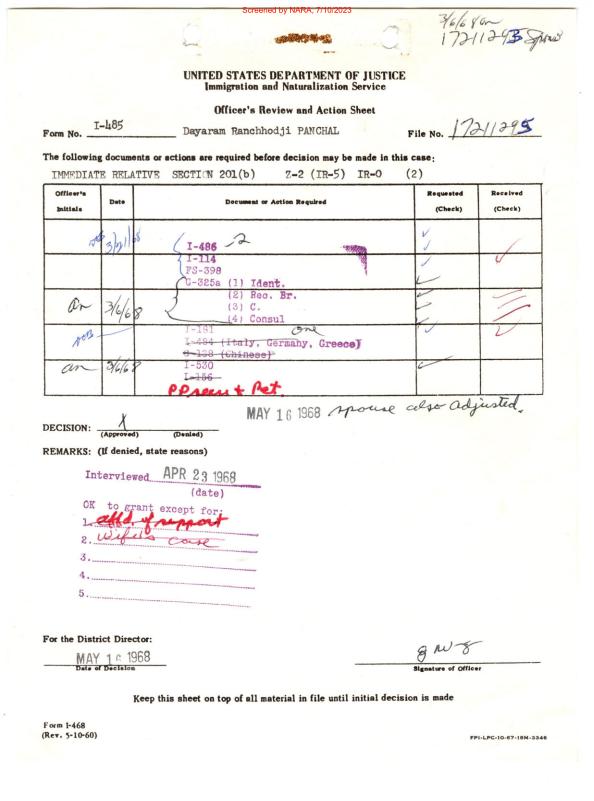 Screened by NARA, 7/10/2023
3/6/68 an
17211293 Spouse
UNITED STATES DEPARTMENT OF JUSTICE
Immigration and Naturalization Service
Officer's Review and Action Sheet
Form No. I-485 Dayaram Ranchhodji PANCHAL File No. 17211295
The following documents or actions are required before decision may be made in this case:
IMMEDIATE RELATIVE SECTION 201(b) Z-2 (IR-5) IR-0 (2)
Officer's Initials Date Document or Action Required Requested (Check) Received (Check)
I-486 2
I-114
FS-398
G-325a (1) Ident.
(2) Rec. Br.
an 3/6/68 (3) C.
(4) Consul
I-181 one
I-484 (Italy, Germany, Greece)
G-138 (Chinese)
an 3/6/68 I-530
I-156
PP seen + Ret.
MAY 16 1968 spouse also adjusted.
DECISION: X
(Approved) (Denied)
REMARKS: (If denied, state reasons)
Interviewed APR 23 1968
(date)
OK to grant except for:
1. affd. of support
2. Wife's case
3.
4.
5.
For the District Director:
MAY 16 1968
Date of Decision Signature of Officer
Keep this sheet on top of all material in file until initial decision is made
Form I-468
(Rev. 5-10-60) FPI-LPC-10-67-15M-3346